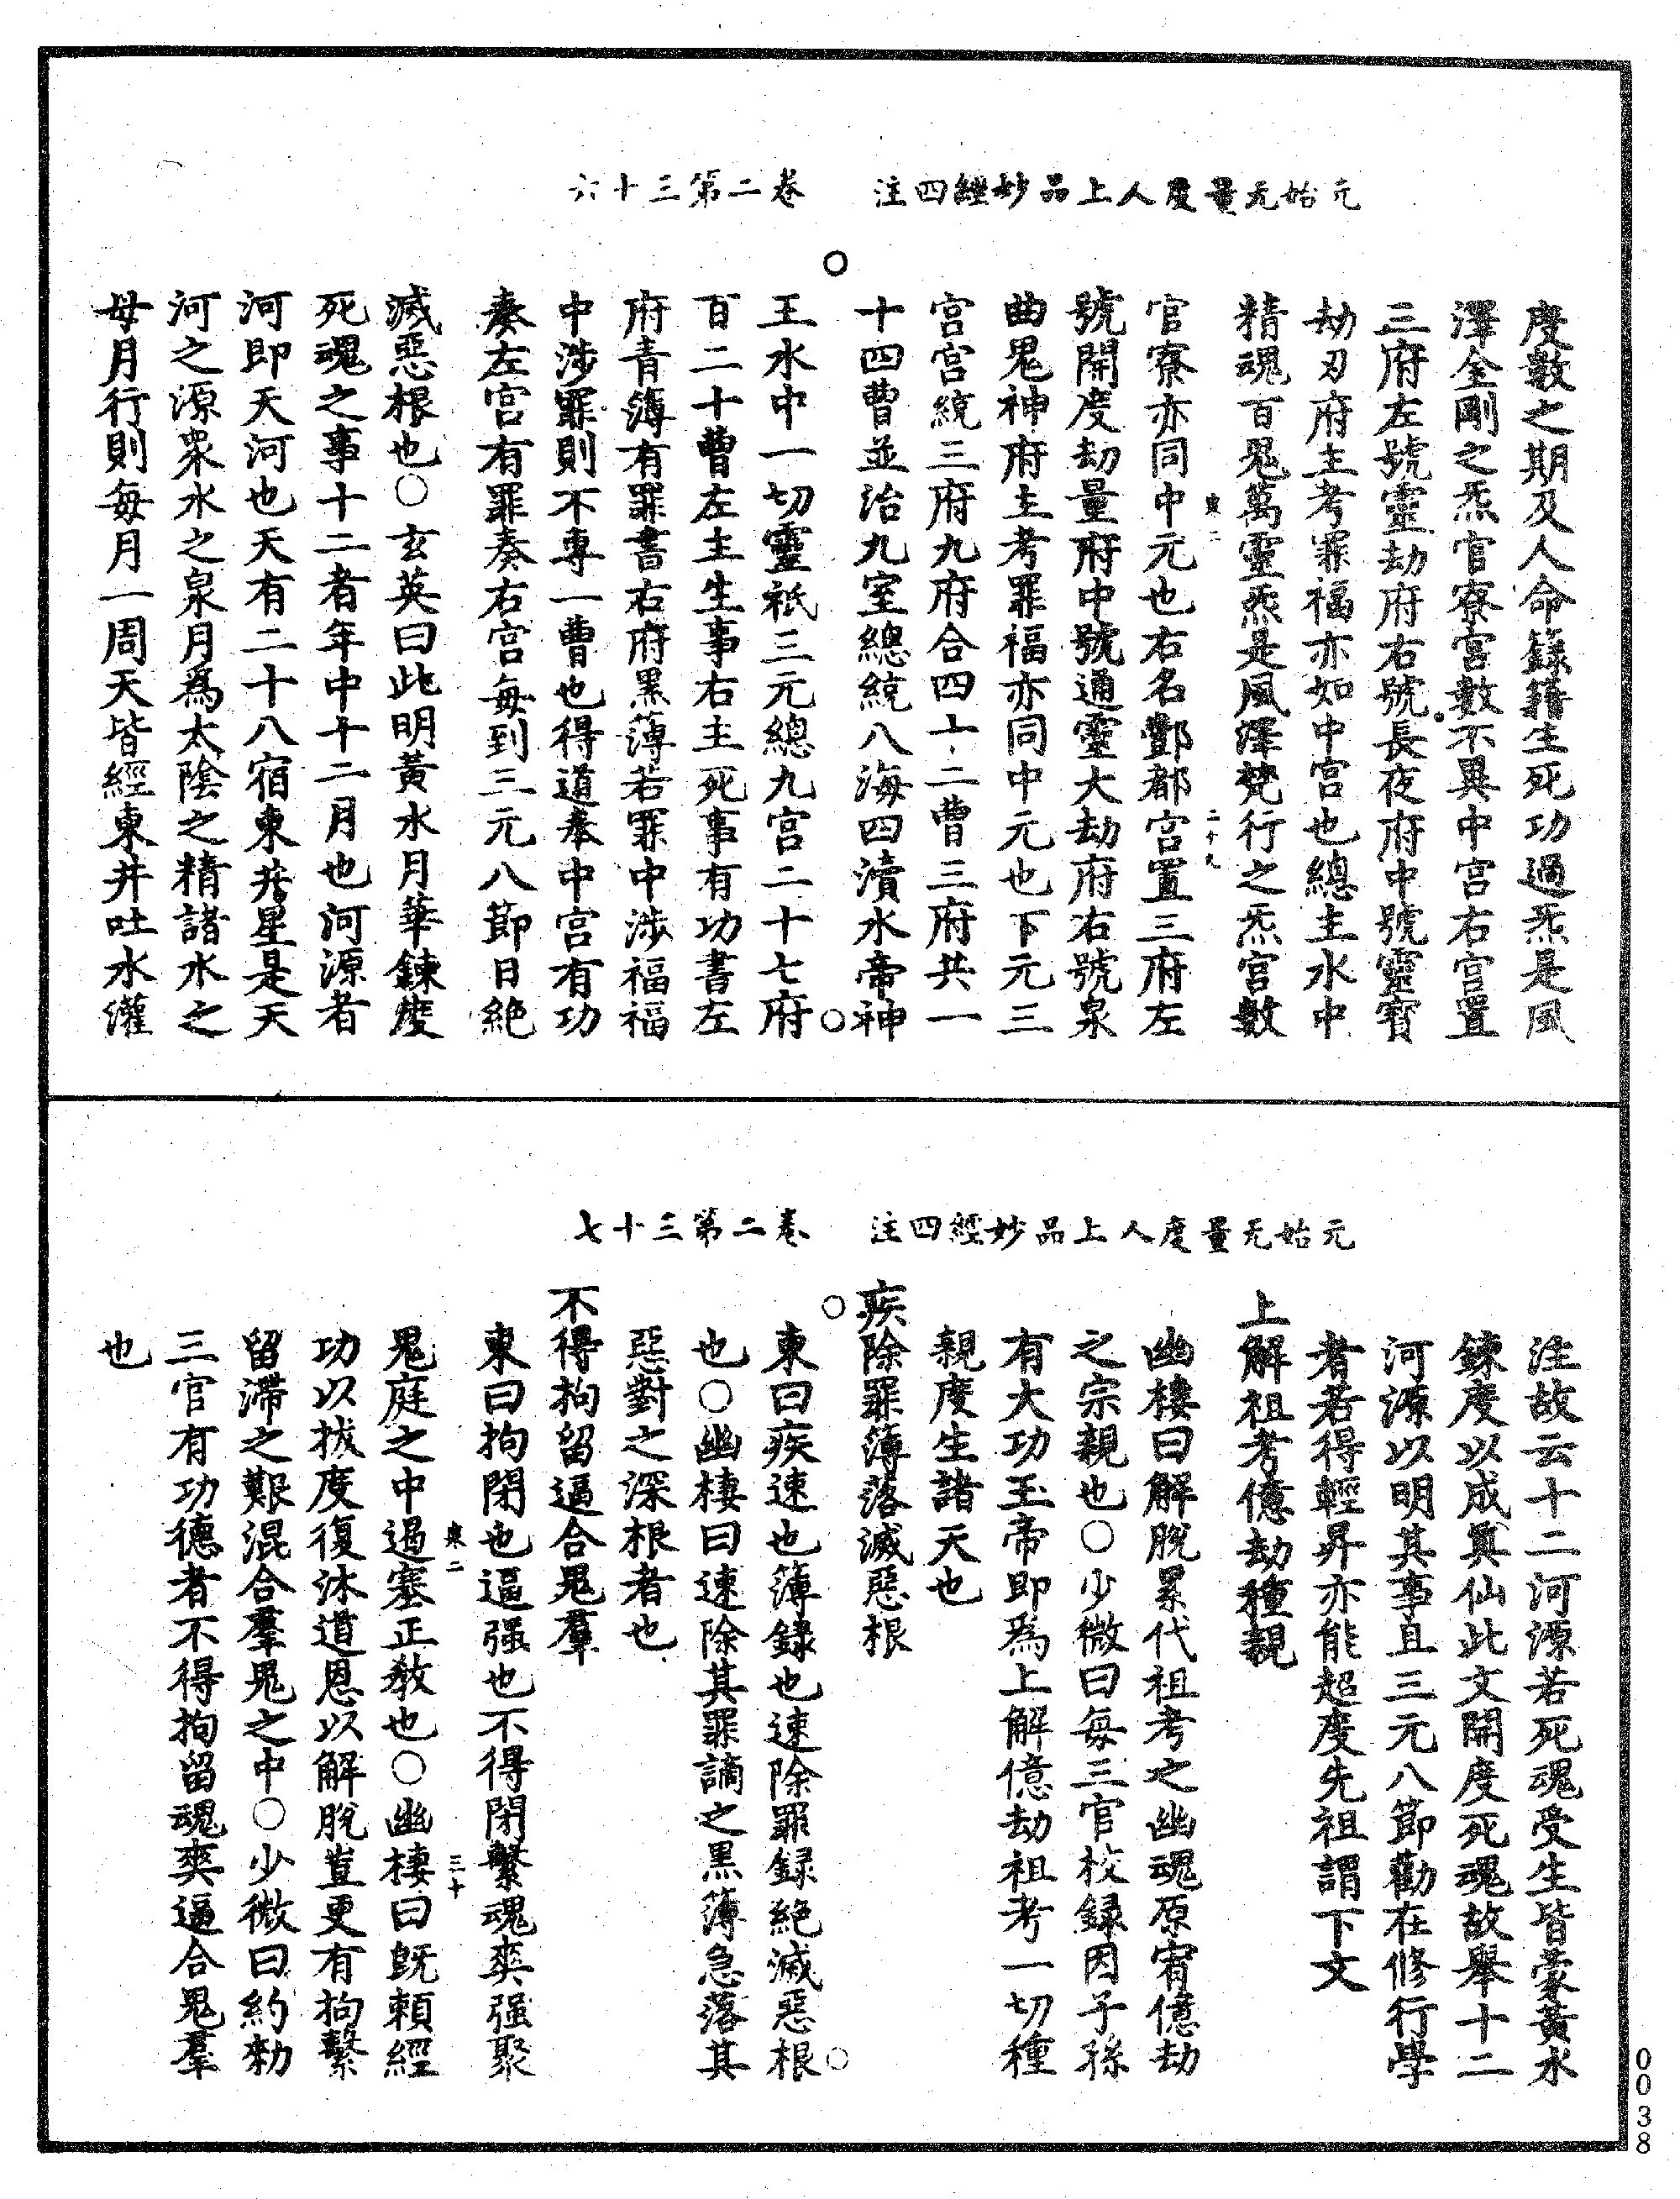 元始无量度人上品妙經四注　卷二第三十六
度數之期及人命錄籍生死功過炁是風
澤全剛之炁官寮宮數不異中宮右宮置
三府左號靈劫府右號長夜府中號靈寶
劫刃府主考罪福亦如中宮也總主水中
精魂百鬼萬靈炁是風澤梵行之炁宮數
東二　二十九
官寮亦同中元也右名酆都宮置三府左
號開度劫量府中號通靈大劫府右號泉
曲鬼神府主考罪福亦同中元也下元三
宮宮統三府九府合四十二曹三府共一
十四曹並治九室總統八海四瀆水帝神
王水中一切靈祇三元總九宮二十七府
百二十曹左主生事右主死事有功書左
府青簿有罪書右府黑薄若罪中涉福福
中涉罪則不專一曹也得道奉中宮有功
奏左宮有罪奏右宮每到三元八節日絕
滅惡根也○玄英曰此明黃水月華鍊度
死魂之事十二者年中十二月也河源者
河即天河也天有二十八宿東井星是天
河之源衆水之泉月爲太陰之精諸水之
母月行則每月一周天皆經東井吐水灌
元始无量度人上品妙經四注　卷二第三十七
注故云十二河源若死魂受生皆蒙黃水
鍊度以成眞仙此文開度死魂故舉十二
河源以明其事且三元八節勸在修行學
者若得輕昇亦能超度先祖謂下文
上解祖考億劫種親
幽棲曰解脫累代祖考之幽魂原宥億劫
之宗親也○少微曰每三官校録因子孫
有大功玉帝即爲上解億劫祖考一切種
親度生諸天也
疾除罪簿落滅惡根
東曰疾速也簿録也速除罪録絕滅惡根
也○幽棲曰速除其罪謫之黑薄急落其
惡對之深根者也
不得拘留逼合鬼羣
東曰拘閉也逼强也不得閉繫魂爽强聚
東二　三十
鬼庭之中遏塞正敎也○幽棲曰旣賴經
功以拔度復沐道恩以解脫豈更有拘繫
留滯之艱混合羣鬼之中○少微曰約勑
三官有功德者不得拘留魂爽逼合鬼羣
也
0038